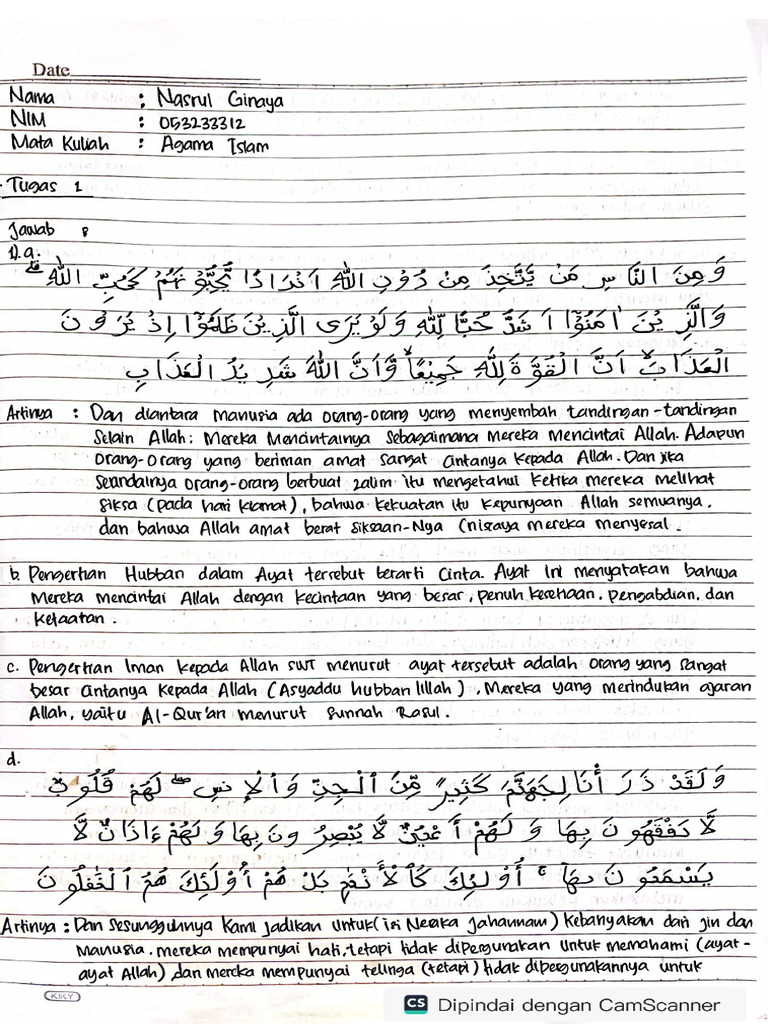 Date
Nama : Nasrul Ginaya
NIM : 053233312
Mata Kuliah : Agama Islam
Tugas 1
Jawab :
1). a.
وَمِنَ النَّاسِ مَنْ يَتَّخِذُ مِنْ دُوْنِ اللّٰهِ اَنْدَادًا يُّحِبُّوْنَهُمْ كَحُبِّ اللّٰهِ ۗ
وَالَّذِيْنَ اٰمَنُوْٓا اَشَدُّ حُبًّا لِّلّٰهِ وَلَوْ يَرَى الَّذِيْنَ ظَلَمُوْٓا اِذْ يَرَوْنَ
الْعَذَابَۙ اَنَّ الْقُوَّةَ لِلّٰهِ جَمِيْعًاۙ وَّاَنَّ اللّٰهَ شَدِيْدُ الْعَذَابِ
Artinya : Dan diantara manusia ada orang-orang yang menyembah tandingan-tandingan
Selain Allah; Mereka Mencintainya Sebagaimana Mereka Mencintai Allah. Adapun
Orang-Orang yang beriman amat sangat cintanya kepada Allah. Dan jika
Seandainya orang-orang berbuat zalim itu mengetahui ketika mereka melihat
Siksa (pada hari kiamat), bahwa kekuatan itu kepunyaan Allah semuanya.
dan bahwa Allah amat berat siksaan-Nya (niscaya mereka menyesal.
b. Pengertian Hubban dalam Ayat tersebut berarti Cinta. Ayat ini menyatakan bahwa
Mereka mencintai Allah dengan kecintaan yang besar, penuh kesetiaan, pengabdian, dan
ketaatan.
c. Pengertian Iman kepada Allah SWT menurut ayat tersebut adalah orang yang sangat
besar cintanya kepada Allah (Asyaddu hubban lillah), Mereka yang merindukan ajaran
Allah, yaitu Al-Qur'an menurut Sunnah Rasul.
d.
وَلَقَدْ ذَرَأْنَا لِجَهَنَّمَ كَثِيرًا مِّنَ ٱلْجِنِّ وَٱلْإِنسِ ۖ لَهُمْ قُلُوبٌ
لَّا يَفْقَهُونَ بِهَا وَلَهُمْ أَعْيُنٌ لَّا يُبْصِرُونَ بِهَا وَلَهُمْ ءَاذَانٌ لَّا
يَسْمَعُونَ بِهَآ ۚ أُو۟لَٰٓئِكَ كَٱلْأَنْعَٰمِ بَلْ هُمْ أُو۟لَٰٓئِكَ هُمُ ٱلْغَٰفِلُونَ
Artinya : Dan sesungguhnya kami jadikan untuk (isi Neraka Jahannam) kebanyakan dari jin dan
Manusia. mereka mempunyai hati, tetapi tidak dipergunakan untuk memahami (ayat-
ayat Allah), dan mereka mempunyai telinga (tetapi) tidak dipergunakannya untuk
KKY
CS Dipindai dengan CamScanner